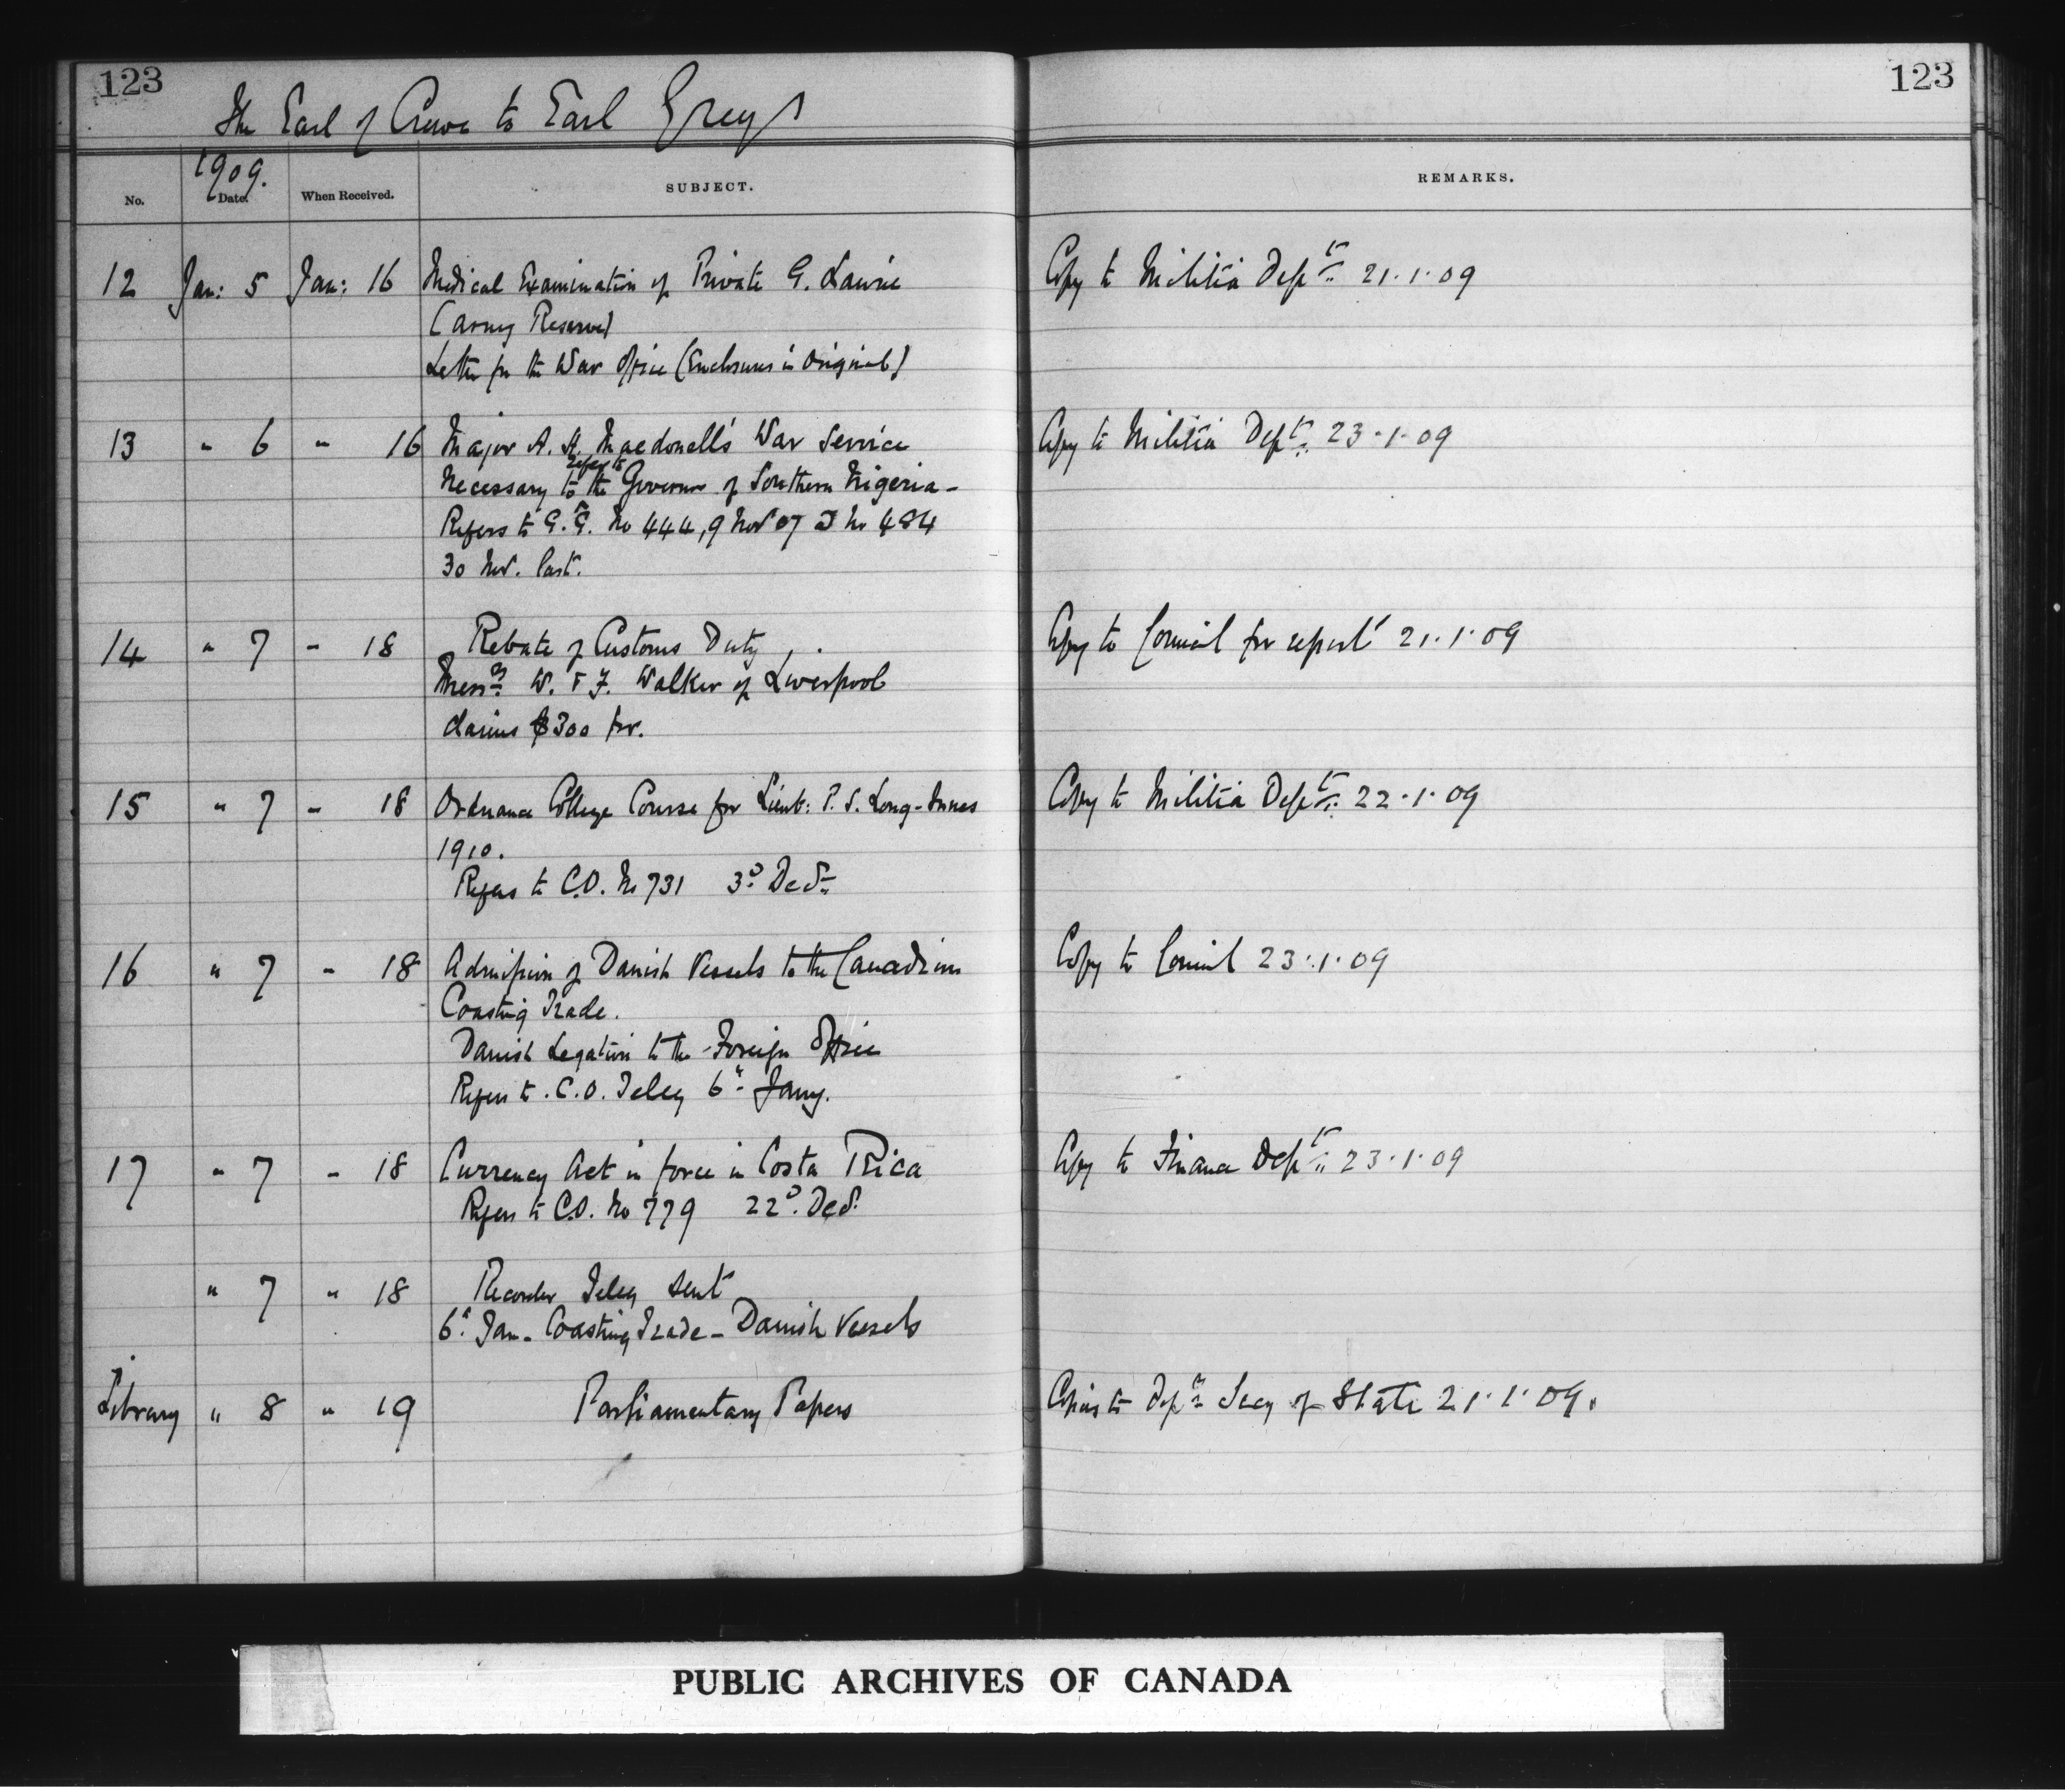 123
123
The Earl of Crewe to Earl Grey
1909.
No.
Date.
When Received.
SUBJECT.
REMARKS.
12 Jan: 5 Jan: 16 Medical Examination of Private G. Laurie Copy to Militia Dept. 21.1.09
(Army Reserve)
Letter fr the War Office (Enclosures in Original)
13 " 6 " 16 Major A. H. Macdonell's War Service Copy to Militia Dept. 23.1.09
refer to
Necessary to the Governor of Southern Nigeria -
Refers to G.G. No 444, 9 Nov 07 & No 484
30 Nov. last.
14 " 7 " 18 Rebate of Customs Duty Copy to Council for report 21.1.09
Messrs W. & J. Walker of Liverpool
claims $300 for.
15 " 7 " 18 Ordnance College Course for Lieut: P. S. Long-Innes Copy to Militia Dept. 22.1.09
1910.
Refers to C.O. No 731 3d Decr
16 " 7 " 18 Admission of Danish Vessels to the Canadian Copy to Council 23.1.09
Coasting Trade.
Danish Legation to the Foreign Office
Refers to C.O. Teleg 6th Jany.
17 " 7 " 18 Currency Act in force in Costa Rica Copy to Finance Dept. 23.1.09
Refers to C.O. No 779 22d. Decr.
" 7 " 18 Recorder Teleg sent
6th Jan - Coasting Trade - Danish Vessels
Library " 8 " 19 Parliamentary Papers Copies to Secy of State 21.1.09.
PUBLIC ARCHIVES OF CANADA